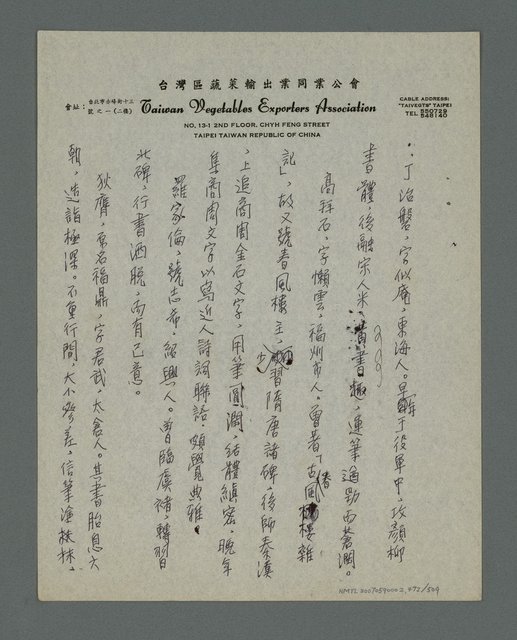 台灣區蔬菜輸出業同業公會
會址：台北市赤峰街十三號之一（二樓）
Taiwan Vegetables Exporters Association
CABLE ADDRESS:
"TAIVEGTB" TAIPEI
TEL 550729
548140
NO. 13-1 2ND FLOOR. CHYH FENG STREET
TAIPEI TAIWAN REPUBLIC OF CHINA
丁治磐，字似庵，東海人。早於役軍中，攻顏柳
書體，後融宋人米、黃書趣，運筆遒勁而蒼潤。
高拜石，字懶雲，福州市人。曾著「古春風樓雜
記」，故又號春風樓主，少習隋唐諸碑，後師秦漢
，上追商周金石文字，用筆圓潤，結體縝密，晚年
集商周文字以寫近人詩詞聯語，頗覺典雅。
羅家倫，號志希，紹興人。曾臨虞褚，轉習
北碑，行書洒脫，而有己意。
狄膺，原名福鼎，字君武，太倉人。其書胎息六
朝，造詣極深。不重行間，大小參差，信筆塗抹，
NMTL 20070590002, 472/509